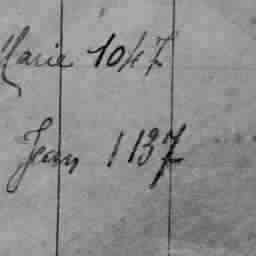 Marie 1047
Jean 1137